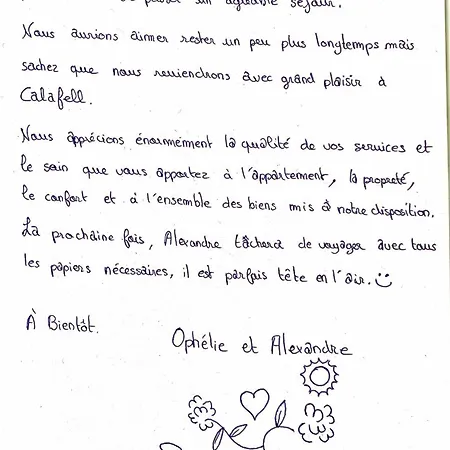 un agréable séjour.
Nous aurions aimer rester un peu plus longtemps mais
sachez que nous reviendrons avec grand plaisir à
Calafell.
Nous apprécions énormément la qualité de vos services et
le soin que vous apportez à l'appartement, la propreté,
le confort et à l'ensemble des biens mis à notre disposition.
La prochaine fois, Alexandre tâchera de voyager avec tous
les papiers nécessaires, il est parfois tête en l'air.
À Bientôt.
Ophélie et Alexandre